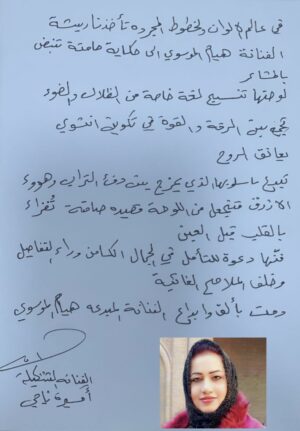 في عالم الالوان والخطوط المجرده تأخذنا ريشة
الفنانة هيام الموسوي الى حكاية صامتة تنبض
بالمشاعر
لوحتها تنسج لغة خاصة من الظلال والضوء
تجمع بين الرقة والقوة في تكوين انثوي
يعانق الروح
باسلوبها الذي يمزج بين دفئ الترابي وهدوء
الازرق فتجعل من اللوحة قصيده صامتة تُقرأ
بالقلب قبل العين
فنها دعوة للتأمل في الجمال الكامن وراء التفاصيل
وخلف الملامح الغائبة
ودمت بألق وابداع الفنانة المبدعه هيام الموسوي
الفنانه التشكيلية
أميرة ناجي